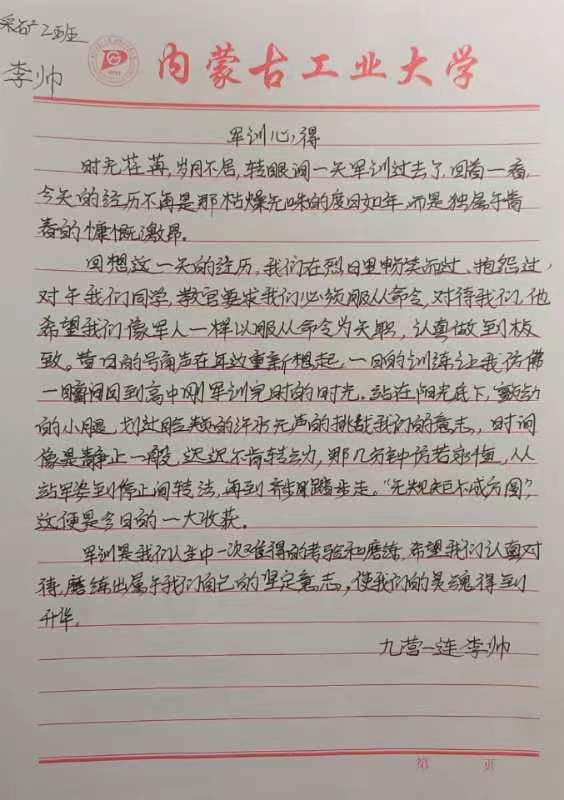 采矿工班
李帅
内蒙古工业大学
军训心得
时光荏苒,岁月不居,转眼间一天军训过去了,回首一看,
今天的经历不再是那枯燥无味的度日如年,而是独属于青
春的慷慨激昂。
回想这一天的经历,我们在烈日里畅笑而过、抱怨过,
对于我们同学,教官要求我们必须服从命令,对待我们,他
希望我们像军人一样以服从命令为天职,认真做到极
致。昔日的号角声在耳边重新想起,一日的训练让我仿佛
一瞬间回到高中刚军训完时的时光。站在阳光底下,颤动
的小腿,划过脸颊的汗水无声的挑战我们的意志,时间
像是静止一般,迟迟不肯转动,那几分钟仿若永恒,从
站军姿到停止间转法,再到齐步踏步走。“无规矩不成方圆”,
这便是今日的一大收获。
军训是我们人生中一次难得的考验和磨练,希望我们认真对
待,磨练出属于我们自己的坚定意志,使我们的灵魂得到
升华。
九营一连 李帅
第 页